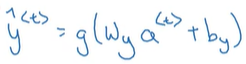 ŷ<t> = g(Wy a<t> + by)